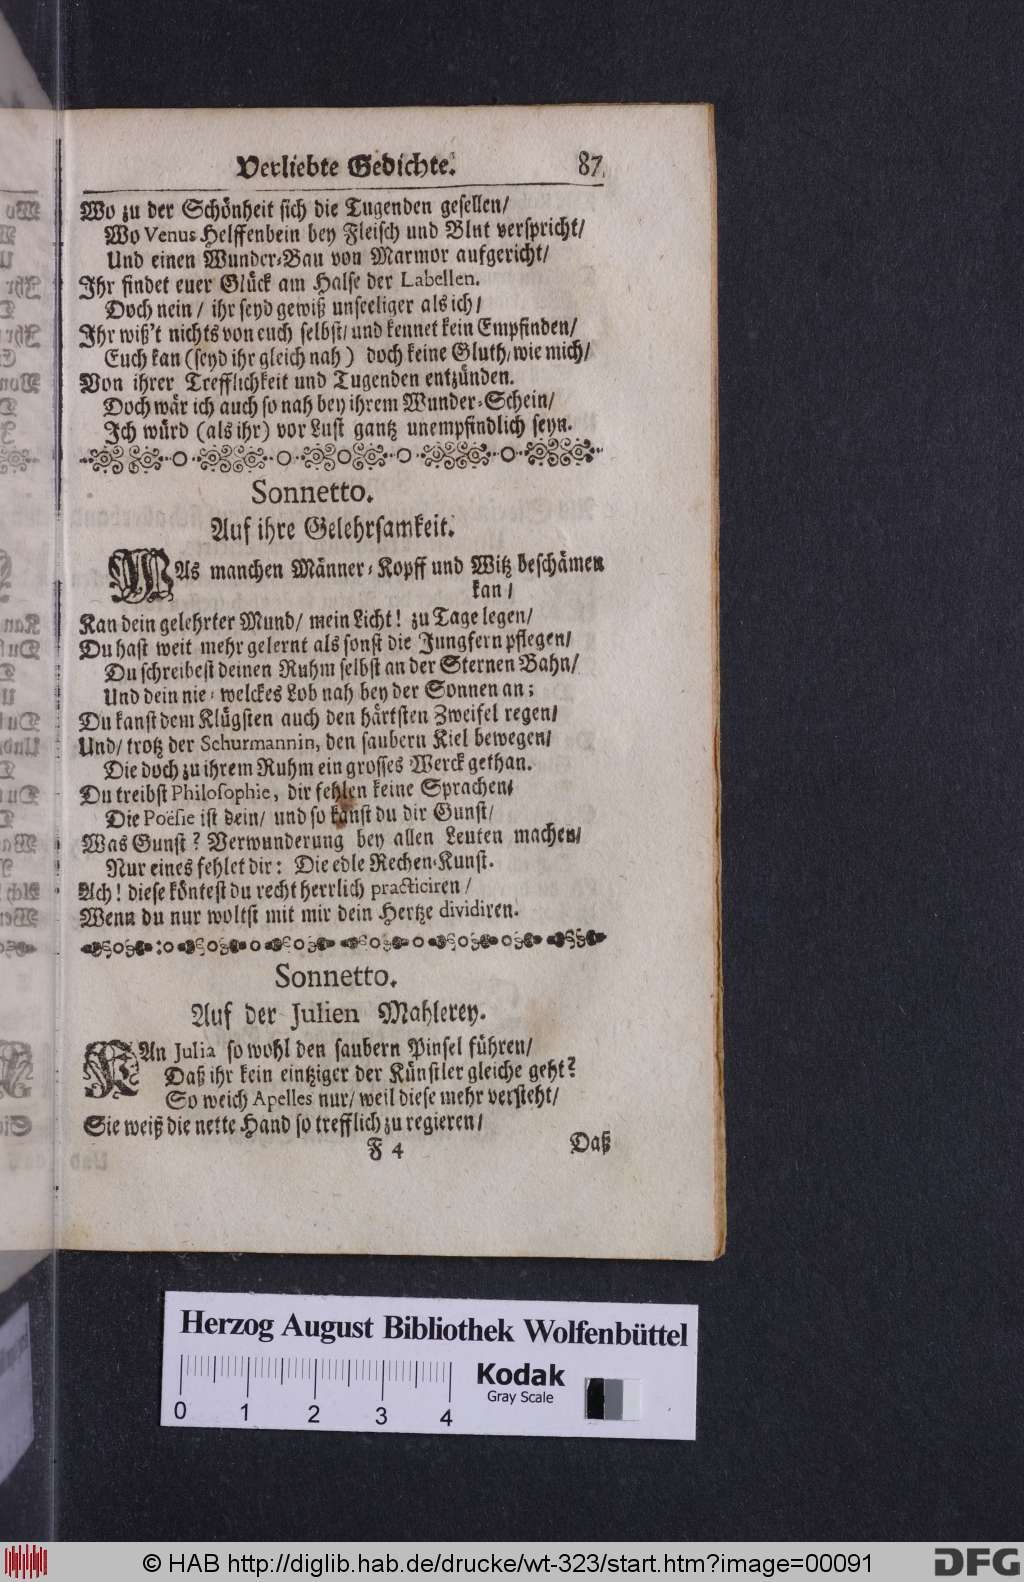 Verliebte Gedichte. 87
Wo zu der Schönheit sich die Tugenden gesellen/
Wo Venus Helffenbein bey Fleisch und Blut verspricht/
Und einen Wunder-Bau von Marmor aufgericht/
Ihr findet euer Glück am Halse der Labellen.
Doch nein/ ihr seyd gewiß unseeliger als ich/
Ihr wiß't nichts von euch selbst/ und kennet kein Empfinden/
Euch kan (seyd ihr gleich nah) doch keine Gluth/ wie mich/
Von ihrer Trefflichkeit und Tugenden entzünden.
Doch wär ich auch so nah bey ihrem Wunder-Schein/
Ich würd (als ihr) vor Lust gantz unempfindlich seyn.
Sonnetto.
Auf ihre Gelehrsamkeit.
WAs manchen Männer-Kopff und Witz beschämen
kan/
Kan dein gelehrter Mund/ mein Licht! zu Tage legen/
Du hast weit mehr gelernt als sonst die Jungfern pflegen/
Du schreibest deinen Ruhm selbst an der Sternen Bahn/
Und dein nie-welckes Lob nah bey der Sonnen an;
Du kanst dem Klügsten auch den härtsten Zweifel regen/
Und/ trotz der Schurmannin, den saubern Kiel bewegen/
Die doch zu ihrem Ruhm ein grosses Werck gethan.
Du treibst Philosophie, dir fehlen keine Sprachen/
Die Poësie ist dein/ und so kanst du dir Gunst/
Was Gunst? Verwunderung bey allen Leuten machen/
Nur eines fehlet dir: Die edle Rechen-Kunst.
Ach! diese köntest du recht herrlich practiciren/
Wenn du nur woltst mit mir dein Hertze dividiren.
Sonnetto.
Auf der Julien Mahlerey.
KAn Julia so wohl den saubern Pinsel führen/
Daß ihr kein eintziger der Künstler gleiche geht?
So weich Apelles nur/ weil diese mehr versteht/
Sie weiß die nette Hand so trefflich zu regieren/
F 4 Daß
Herzog August Bibliothek Wolfenbüttel
Kodak
Gray Scale
0 1 2 3 4
© HAB http://diglib.hab.de/drucke/wt-323/start.htm?image=00091
DFG